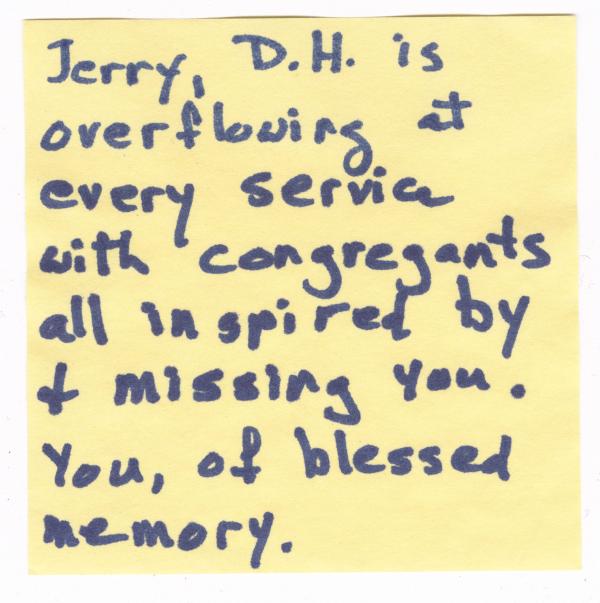 Jerry, D.H. is
overflowing at
every service
with congregants
all inspired by
& missing you.
You, of blessed
memory.